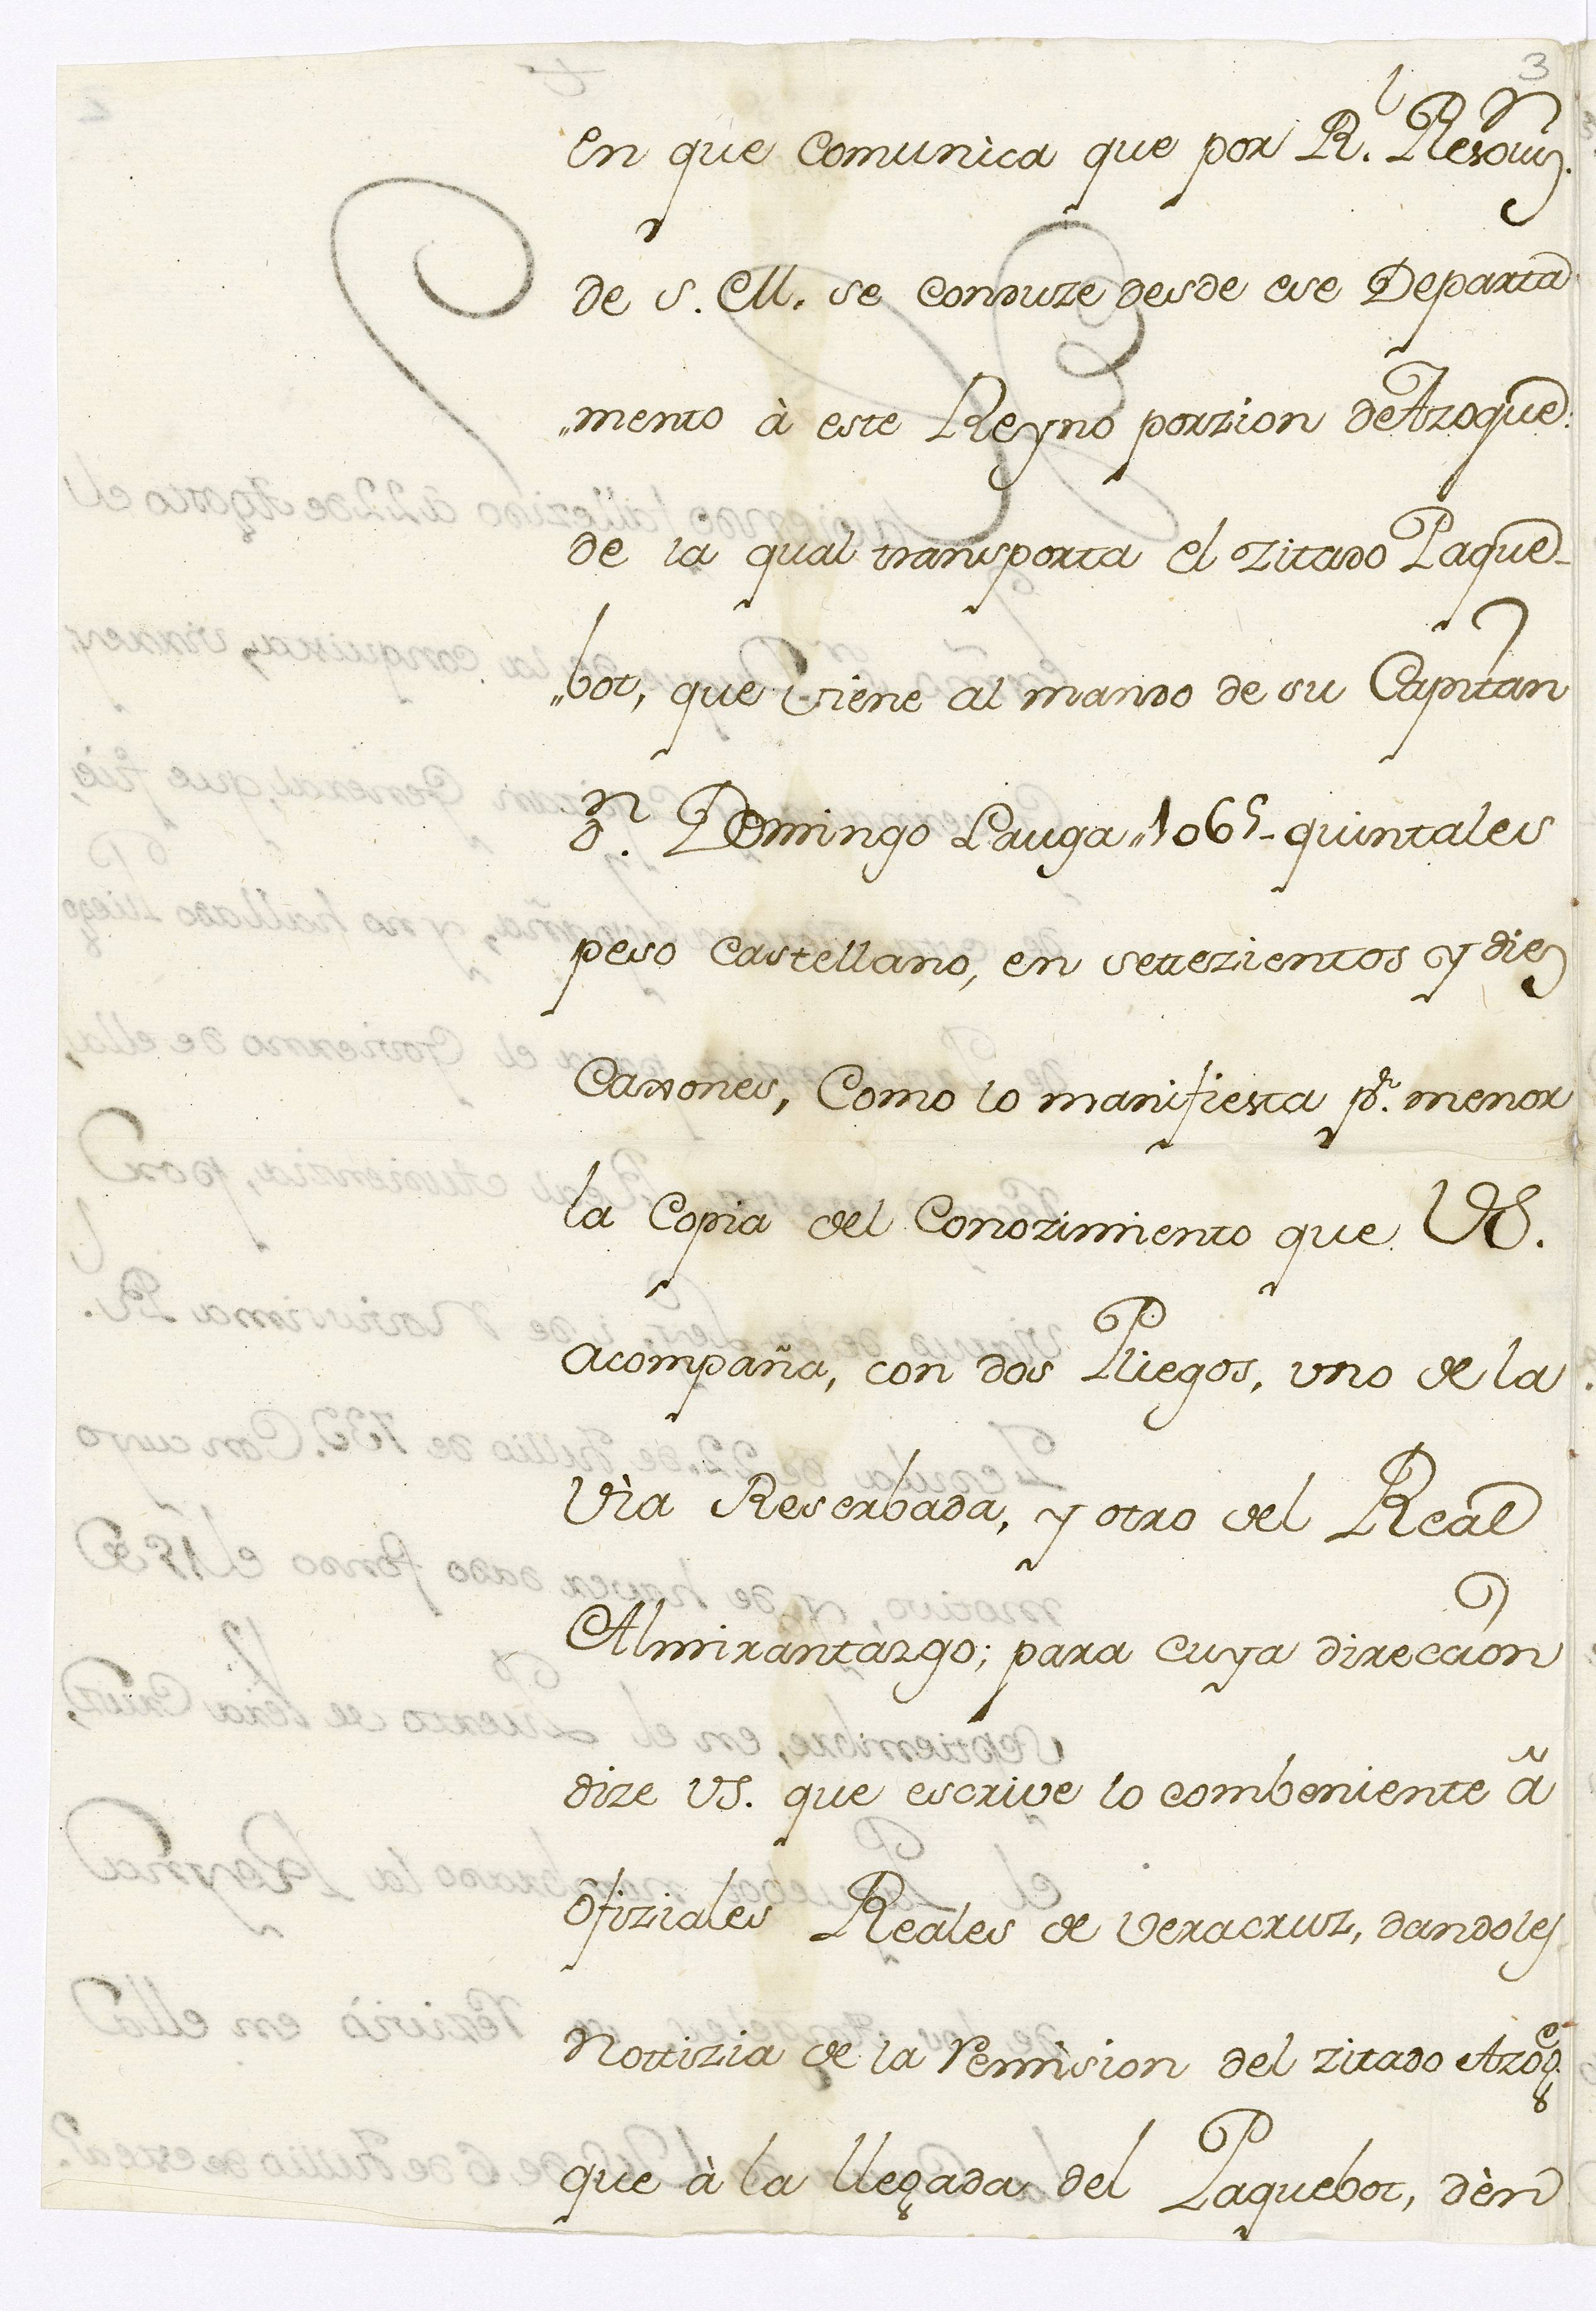 3
en que comunica que por R.l Resoluz.n
de S. M. se conduze desde ese Departa
„mento à este Reyno porzion de Azogue:
de la qual transporta el zitado Paque-
„bot, que viene al mando de su Capitan
D.n Domingo Lauga „1065- quintales
peso Castellano, en settezientos y diez
Caxones, Como lo manifiesta p.r menor
la Copia del Conozimiento que VS.
acompaña, con dos Pliegos, uno de la
Vìa Reserbada, y otro del Real
Almirantazgo; para cuya direccion
dize VS. que escrive lo combeniente à
ofiziales Reales de Veracruz, dandoles
Nottizia de la remision del zitado Azog.e
que à la llegada del Paquebot, dèn